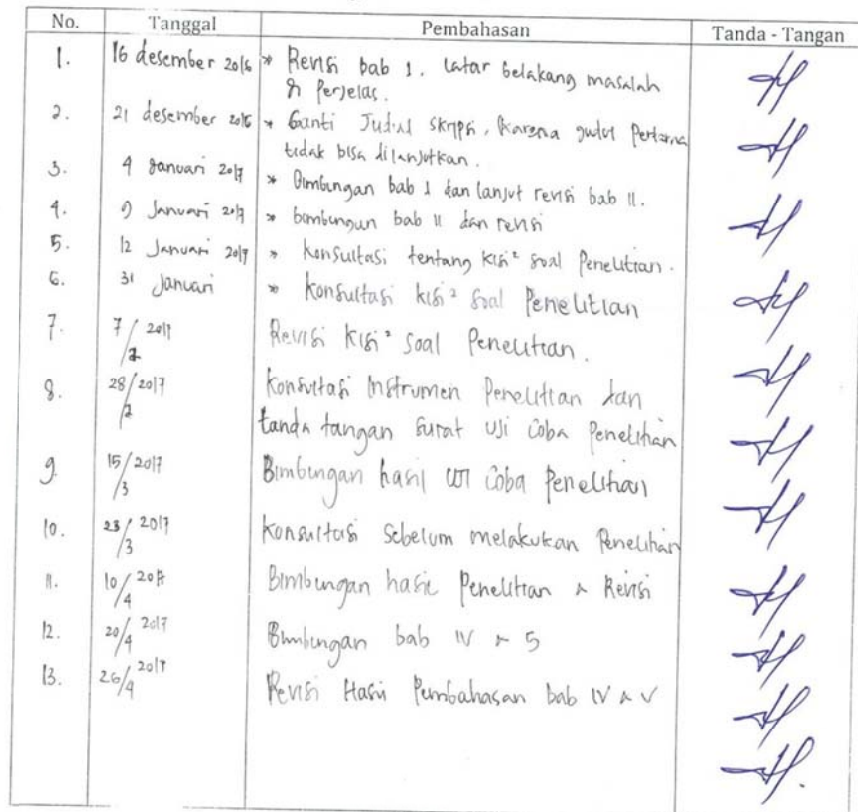 No. Tanggal Pembahasan Tanda - Tangan
1. 16 desember 2016 * Revisi bab 1. latar belakang masalah
di perjelas.
2. 21 desember 2016 * Ganti Judul skripsi, karena judul pertama
tidak bisa dilanjutkan.
3. 4 Januari 2017 * Bimbingan bab 1 dan lanjut revisi bab II.
4. 9 Januari 2017 * bimbingan bab II dan revisi
5. 12 Januari 2017 * konsultasi tentang kisi² soal Penelitian.
6. 31 Januari * konsultasi kisi² soal Penelitian
7. 7/2 2017 Revisi kisi² soal Penelitian.
8. 28/2 2017 konsultasi instrumen Penelitian dan
tanda tangan surat uji coba Penelitian
9. 15/3 2017 Bimbingan hasil uji coba Penelitian
10. 23/3 2017 konsultasi sebelum melakukan Penelitian
11. 10/4 2017 Bimbingan hasil Penelitian & Revisi
12. 20/4 2017 Bimbingan bab IV & 5
13. 26/4 2017 Revisi Hasil Pembahasan bab IV & V